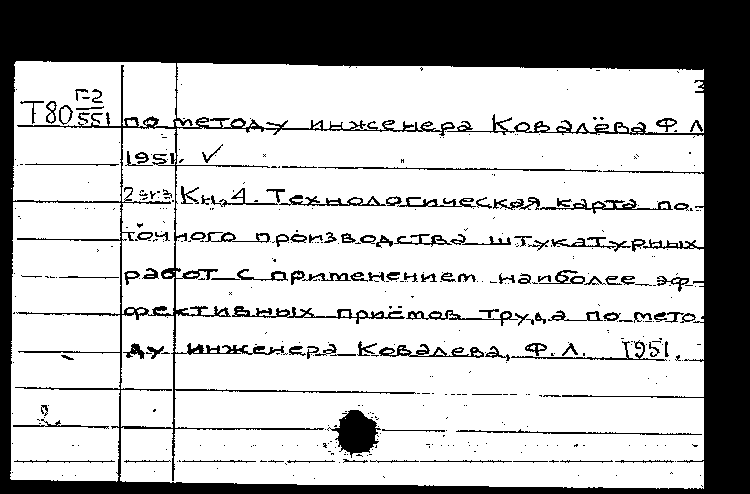 3
Т80 Г-2/551 по методу инженера Ковалёва Ф. Л
1951. ✓
2 экз Кн. 4. Технологическая карта по-
точного производства штукатурных
работ с применением наиболее эф-
фективных приёмов труда по мето-
ду инженера Ковалева, Ф. Л. 1951.
2.